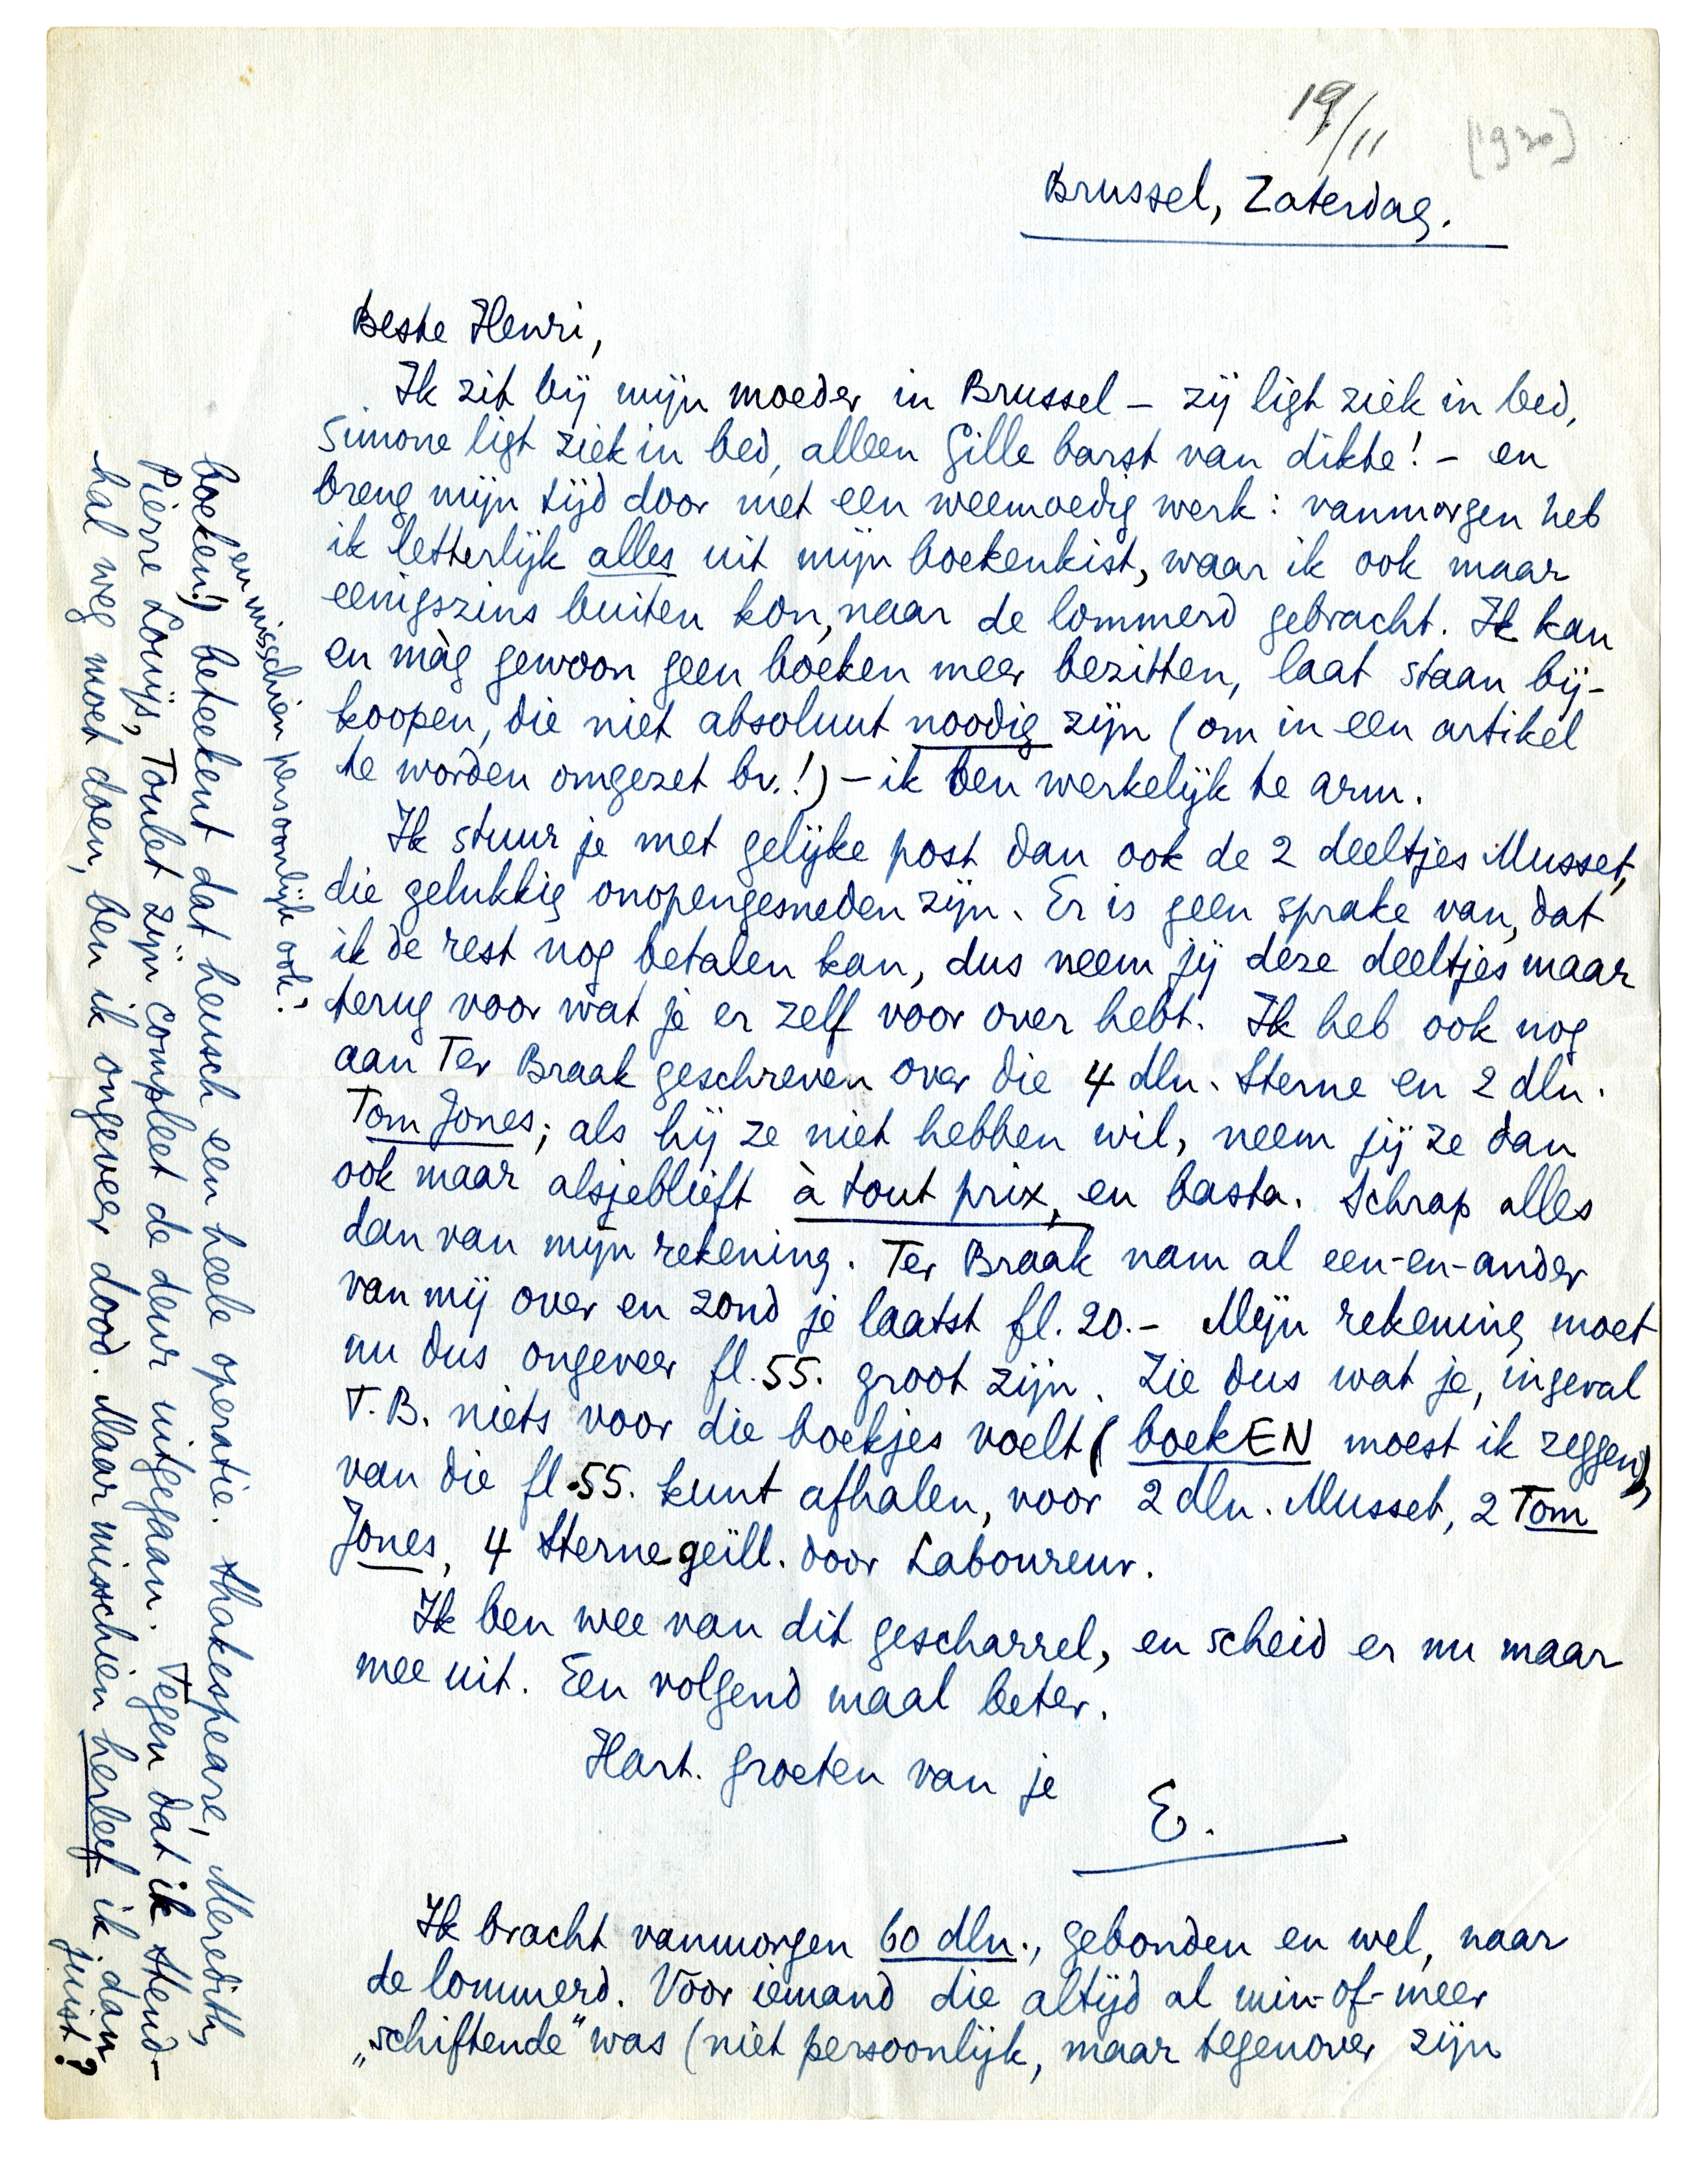 19/11 [1930]
Brussel, Zaterdag.
Beste Henri,
Ik zit bij mijn moeder in Brussel – zij ligt ziek in bed,
Simone ligt ziek in bed, alleen Gille barst van dikte! – en
breng mijn tijd door met een weemoedig werk: vanmorgen heb
ik letterlijk alles uit mijn boekenkist, waar ik ook maar
eenigszins buiten kon, naar de lommerd gebracht. Ik kan
en màg gewoon geen boeken meer bezitten, laat staan bij-
koopen, die niet absoluut noodig zijn (om in een artikel
te worden omgezet bv.!) – ik ben werkelijk te arm.
Ik stuur je met gelijke post dan ook de 2 deeltjes Musset,
die gelukkig onopengesneden zijn. Er is geen sprake van, dat
ik de rest nog betalen kan, dus neem jij deze deeltjes maar
terug voor wat je er zelf voor over hebt. Ik heb ook nog
aan Ter Braak geschreven over die 4 dln. Sterne en 2 dln.
Tom Jones; als hij ze niet hebben wil, neem jij ze dan
ook maar alsjeblieft à tout prix, en basta. Schrap alles
dan van mijn rekening. Ter Braak nam al een-en-ander
van mij over en zond je laatst fl. 20.– Mijn rekening moet
nu dus ongeveer fl. 55. groot zijn. Zie dus wat je, ingeval
T.B. niets voor die boekjes voelt (boekEN moest ik zeggen),
van die fl. 55. kunt afhalen, voor 2 dln. Musset, 2 Tom
Jones, 4 Sterne geïll. door Laboureur.
Ik ben wee van dit gescharrel, en scheid er nu maar
mee uit. Een volgend maal beter.
Hart. groeten van je
E.
Ik bracht vanmorgen 60 dln., gebonden en wel, naar
de lommerd. Voor iemand die altijd al min-of-meer
„schiftende" was (niet persoonlijk, maar tegenover zijn
en misschien persoonlijk ook!
boeken!) beteekent dat heusch een heele operatie. Shakespeare, Meredith,
Pierre Louÿs, Toulet zijn compleet de deur uitgegaan. Tegen dat ik Stend-
hal weg moet doen, ben ik ongeveer dood. Maar misschien herleef ik dan
juist?